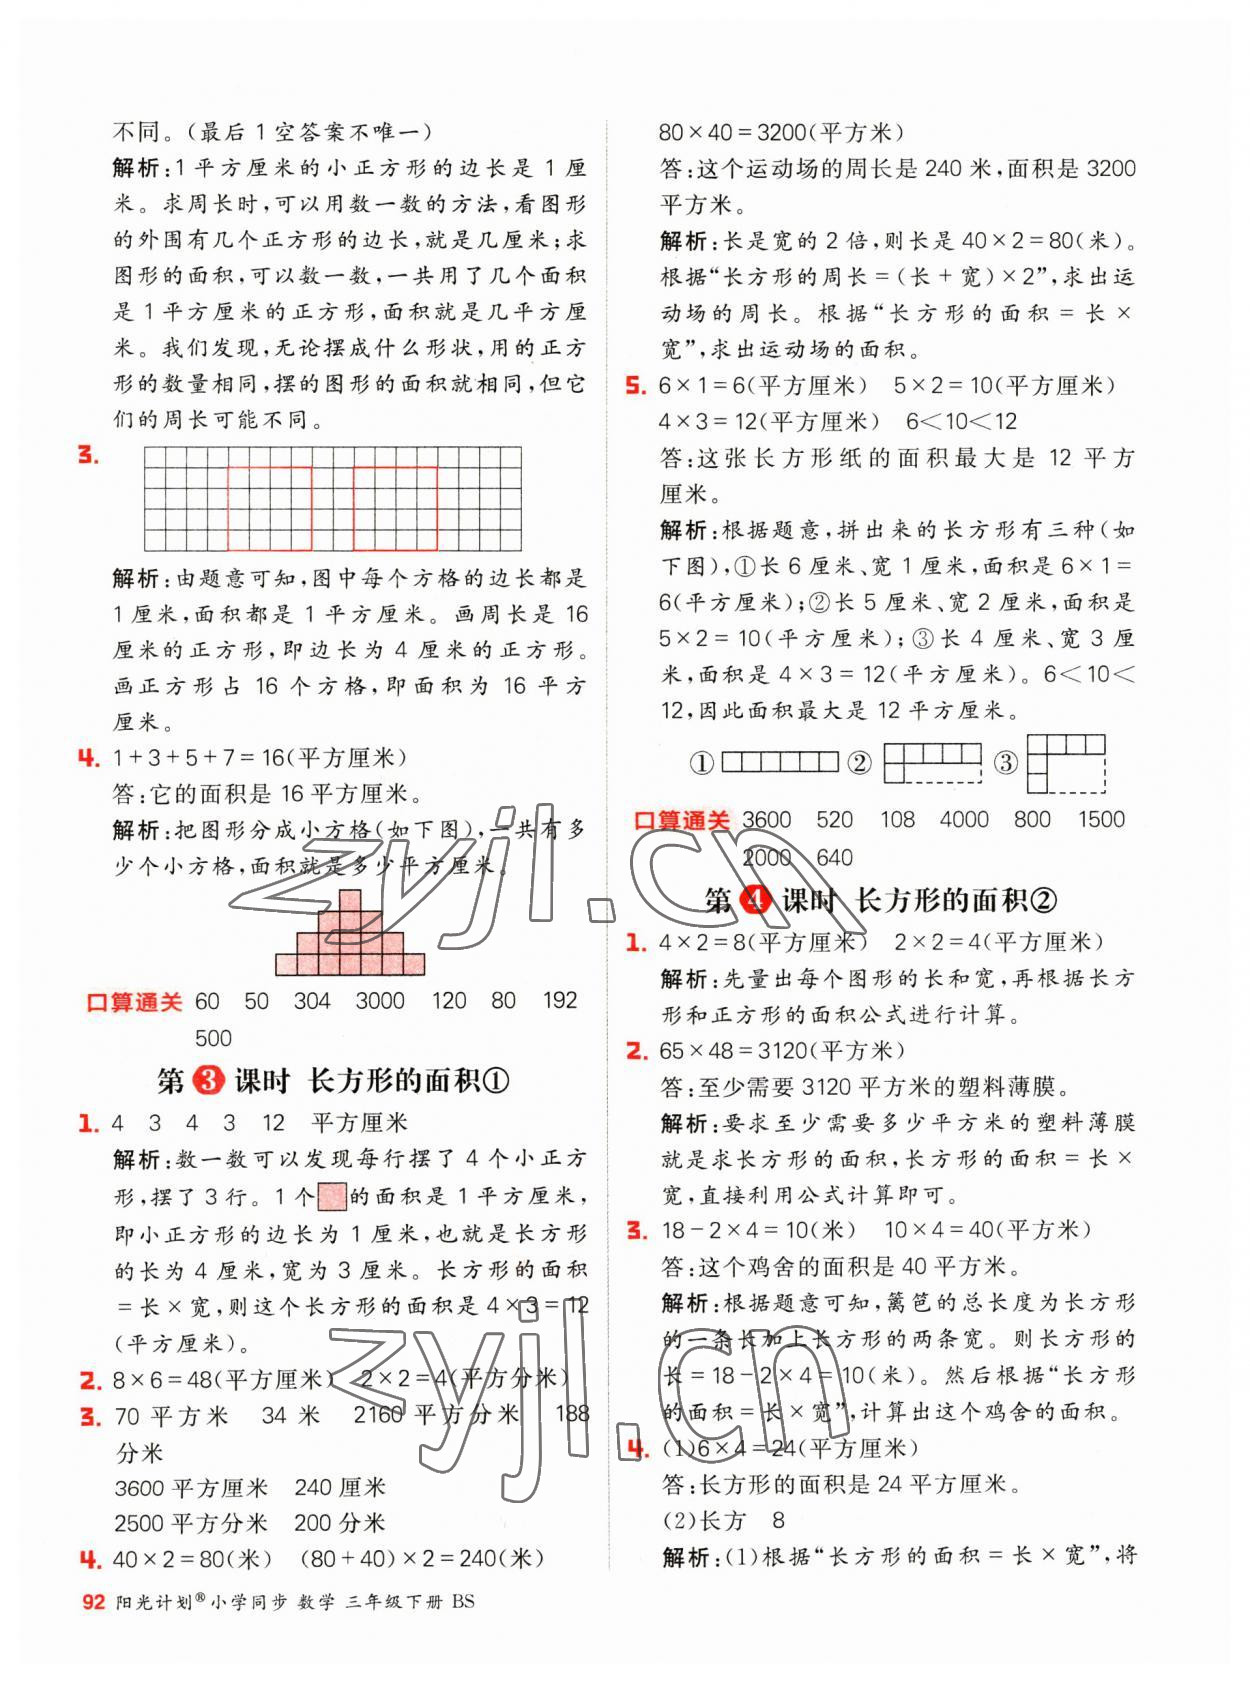 不同。(最后1空答案不唯一)
解析:1平方厘米的小正方形的边长是1厘
米。求周长时,可以用数一数的方法,看图形
的外围有几个正方形的边长,就是几厘米;求
图形的面积,可以数一数,一共用了几个面积
是1平方厘米的正方形,面积就是几平方厘
米。我们发现,无论摆成什么形状,用的正方
形的数量相同,摆的图形的面积就相同,但它
们的周长可能不同。
3.
解析:由题意可知,图中每个方格的边长都是
1厘米,面积都是1平方厘米。画周长是16
厘米的正方形,即边长为4厘米的正方形。
画正方形占16个方格,即面积为16平方
厘米。
4. 1+3+5+7=16(平方厘米)
答:它的面积是16平方厘米。
解析:把图形分成小方格(如下图),一共有多
少个小方格,面积就是多少平方厘米。
口算通关 60 50 304 3000 120 80 192
500
第3课时 长方形的面积①
1. 4 3 4 3 12 平方厘米
解析:数一数可以发现每行摆了4个小正方
形,摆了3行。1个 的面积是1平方厘米,
即小正方形的边长为1厘米,也就是长方形
的长为4厘米,宽为3厘米。长方形的面积
=长×宽,则这个长方形的面积是4×3=12
(平方厘米)。
2. 8×6=48(平方厘米) 2×2=4(平方分米)
3. 70平方米 34米 2160平方分米 188
分米
3600平方厘米 240厘米
2500平方分米 200分米
4. 40×2=80(米) (80+40)×2=240(米)
92 阳光计划®小学同步 数学 三年级下册 BS
80×40=3200(平方米)
答:这个运动场的周长是240米,面积是3200
平方米。
解析:长是宽的2倍,则长是40×2=80(米)。
根据“长方形的周长=(长+宽)×2”,求出运
动场的周长。根据“长方形的面积=长×
宽”,求出运动场的面积。
5. 6×1=6(平方厘米) 5×2=10(平方厘米)
4×3=12(平方厘米) 6<10<12
答:这张长方形纸的面积最大是12平方
厘米。
解析:根据题意,拼出来的长方形有三种(如
下图),①长6厘米、宽1厘米,面积是6×1=
6(平方厘米);②长5厘米、宽2厘米,面积是
5×2=10(平方厘米);③长4厘米、宽3厘
米,面积是4×3=12(平方厘米)。6<10<
12,因此面积最大是12平方厘米。
① ② ③
口算通关 3600 520 108 4000 800 1500
2000 640
第4课时 长方形的面积②
1. 4×2=8(平方厘米) 2×2=4(平方厘米)
解析:先量出每个图形的长和宽,再根据长方
形和正方形的面积公式进行计算。
2. 65×48=3120(平方米)
答:至少需要3120平方米的塑料薄膜。
解析:要求至少需要多少平方米的塑料薄膜
就是求长方形的面积,长方形的面积=长×
宽,直接利用公式计算即可。
3. 18-2×4=10(米) 10×4=40(平方米)
答:这个鸡舍的面积是40平方米。
解析:根据题意可知,篱笆的总长度为长方形
的一条长加上长方形的两条宽。则长方形的
长=18-2×4=10(米)。然后根据“长方形
的面积=长×宽”,计算出这个鸡舍的面积。
4. (1)6×4=24(平方厘米)
答:长方形的面积是24平方厘米。
(2)长方 8
解析:(1)根据“长方形的面积=长×宽”,将
zyjl.cn
zyjl.cn